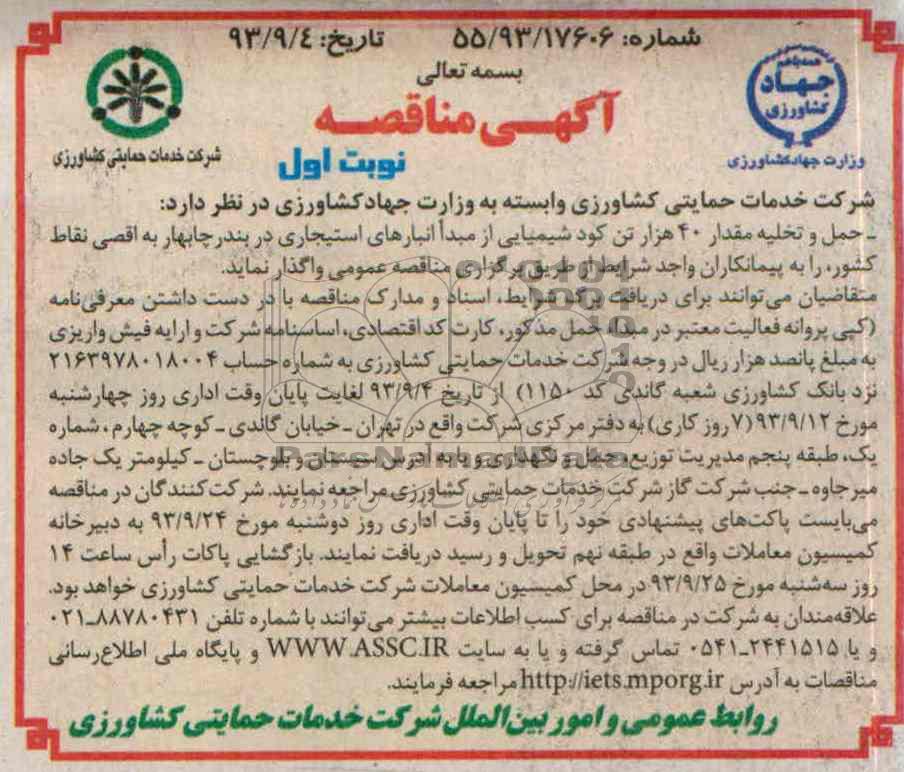 شماره: ۵۵/۹۳/۱۷۶۰۶ تاریخ: ۹۳/۹/٤
بسمه تعالی
همه با هم
جهاد
کشاورزی
وزارت جهادکشاورزی
شرکت خدمات حمایتی کشاورزی
آگهی مناقصه
نوبت اول
شرکت خدمات حمایتی کشاورزی وابسته به وزارت جهادکشاورزی در نظر دارد:
ـ حمل و تخلیه مقدار ۴۰ هزار تن کود شیمیایی از مبدأ انبارهای استیجاری در بندرچابهار به اقصی نقاط
کشور، را به پیمانکاران واجد شرایط از طریق برگزاری مناقصه عمومی واگذار نماید.
متقاضیان می‌توانند برای دریافت برگ شرایط، اسناد و مدارک مناقصه با در دست داشتن معرفی‌نامه
(کپی پروانه فعالیت معتبر در مبداء حمل مذکور، کارت کد اقتصادی، اساسنامه شرکت و ارایه فیش واریزی
به مبلغ پانصد هزار ریال در وجه شرکت خدمات حمایتی کشاورزی به شماره حساب ۲۱۶۳۹۷۸۰۱۸۰۰۴
نزد بانک کشاورزی شعبه گاندی کد ۱۱۵۰) از تاریخ ۹۳/۹/۴ لغایت پایان وقت اداری روز چهارشنبه
مورخ ۹۳/۹/۱۲ (۷ روز کاری) به دفتر مرکزی شرکت واقع در تهران ـ خیابان گاندی ـ کوچه چهارم، شماره
یک، طبقه پنجم مدیریت توزیع، حمل و نگهداری و یا به آدرس سیستان و بلوچستان ـ کیلومتر یک جاده
میرجاوه ـ جنب شرکت گاز شرکت خدمات حمایتی کشاورزی مراجعه نمایند. شرکت‌کنندگان در مناقصه
می‌بایست پاکت‌های پیشنهادی خود را تا پایان وقت اداری روز دوشنبه مورخ ۹۳/۹/۲۴ به دبیرخانه
کمیسیون معاملات واقع در طبقه نهم تحویل و رسید دریافت نمایند. بازگشایی پاکات رأس ساعت ۱۴
روز سه‌شنبه مورخ ۹۳/۹/۲۵ در محل کمیسیون معاملات شرکت خدمات حمایتی کشاورزی خواهد بود.
علاقه‌مندان به شرکت در مناقصه برای کسب اطلاعات بیشتر می‌توانند با شماره تلفن ۸۸۷۸۰۴۳۱-۰۲۱
و یا ۲۴۴۱۵۱۵-۰۵۴۱ تماس گرفته و یا به سایت WWW.ASSC.IR و پایگاه ملی اطلاع‌رسانی
مناقصات به آدرس http://iets.mporg.ir مراجعه فرمایند.
روابط عمومی و امور بین‌الملل شرکت خدمات حمایتی کشاورزی
ParsNamadData